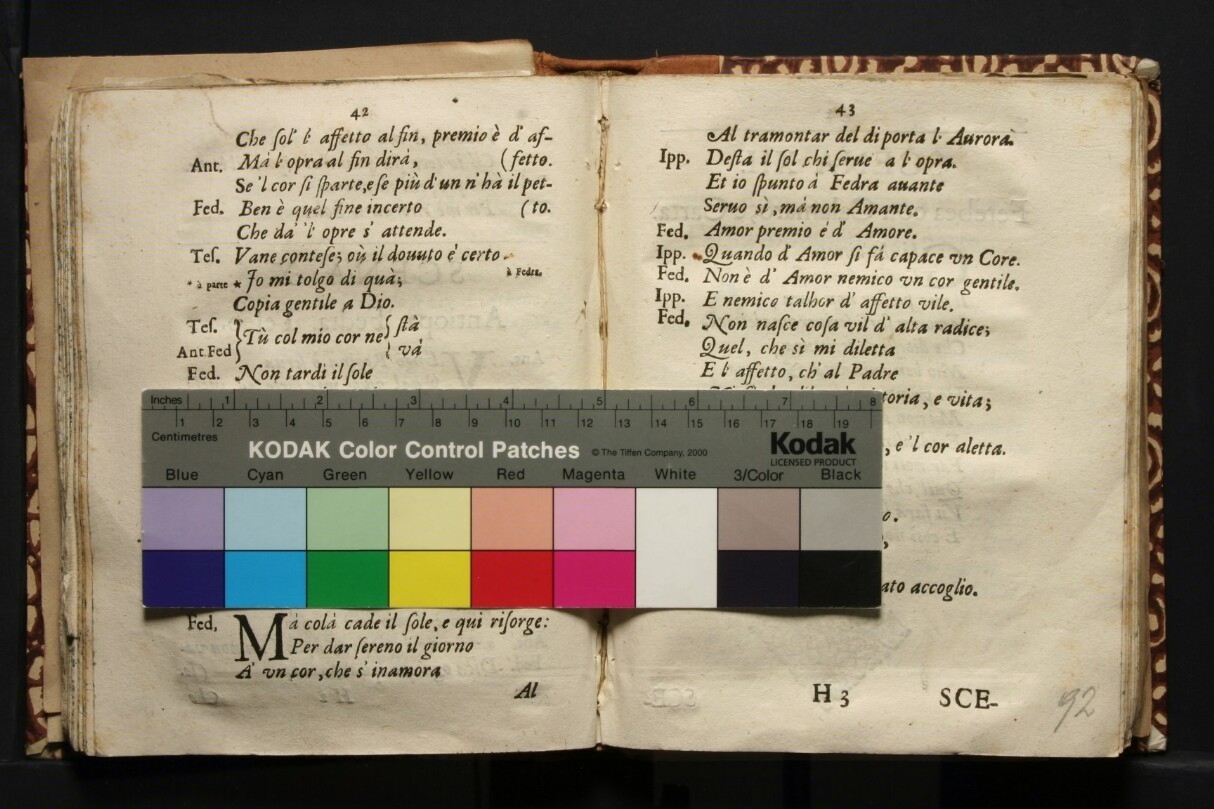 42
Che ſol' l' affetto al fin, premio è d' af-
Ant. Má l' opra al fin dirá, (fetto.
Se 'l cor ſi ſparte, e ſe più d' un n' hà il pet-
Fed. Ben è quel fine incerto (to.
Che da' l' opre s' attende.
Teſ. Vane conteſe; où il douuto é certo.
* à parte * Jo mi tolgo di quà; à Fedra.
Copia gentile a Dio.
Teſ. ſtà
Tù col mio cor ne
Ant. Fed vá
Fed. Non tardi il ſole
Fed, Má colà cade il ſole, e qui riſorge:
Per dar ſereno il giorno
A' vn cor, che s' inamora
Al
43
Al tramontar del di porta l' Aurora.
Ipp. Deſta il ſol chi ſerue a l' opra.
Et io ſpunto á Fedra auante
Seruo sì, má non Amante.
Fed. Amor premio é d' Amore.
Ipp. Quando d' Amor ſi fá capace vn Core.
Fed. Non è d' Amor nemico vn cor gentile.
Ipp. E nemico talhor d' affetto vile.
Fed. Non naſce coſa vil d' alta radice;
Quel, che sì mi diletta
E l' affetto, ch' al Padre
toria, e vita;
, e 'l cor aletta.
o.
ato accoglio.
H 3 SCE-
92
Inches 1 2 3 4 5 6 7 8
1 2 3 4 5 6 7 8 9 10 11 12 13 14 15 16 17 18 19
Centimetres
KODAK Color Control Patches © The Tiffen Company, 2000 Kodak
LICENSED PRODUCT
Blue Cyan Green Yellow Red Magenta White 3/Color Black